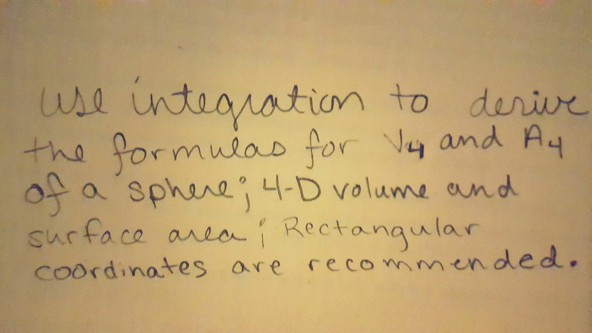 use integration to derive
the formulas for V4 and A4
of a sphere; 4-D volume and
surface area; Rectangular
coordinates are recommended.